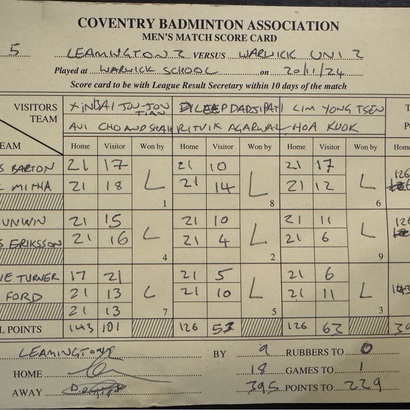 COVENTRY BADMINTON ASSOCIATION
MEN'S MATCH SCORE CARD
5 LEAMINGTON 2 VERSUS WARWICK UNI 2
Played at WARWICK SCHOOL on 20/11/24
Score card to be with League Result Secretary within 10 days of the match
VISITORS TEAM
XINBAI JON JON TIAN DILEEP DADSIPATI LIM YONG TSEN
AVI CHOANDSHAH RITVIK AGARWAL HOA KUOK
EAM Home Visitor Won by Home Visitor Won by Home Visitor Won by Home
BARTON 21 17 21 10 21 17 126
MITHA 21 18 L 1 21 14 L 8 21 12 L 6
UNWIN 21 15 21 10 21 11 126
ERIKSSON 21 16 L 4 21 4 L 2 21 6 L 9
IE TURNER 17 21 21 5 21 6
FORD 21 13 L 7 21 10 L 5 21 11 L 3
21 13
L POINTS 143 101 126 53 126 63
LEAMINGTON BY 9 RUBBERS TO 0
HOME 18 GAMES TO 1
AWAY 395 POINTS TO 229